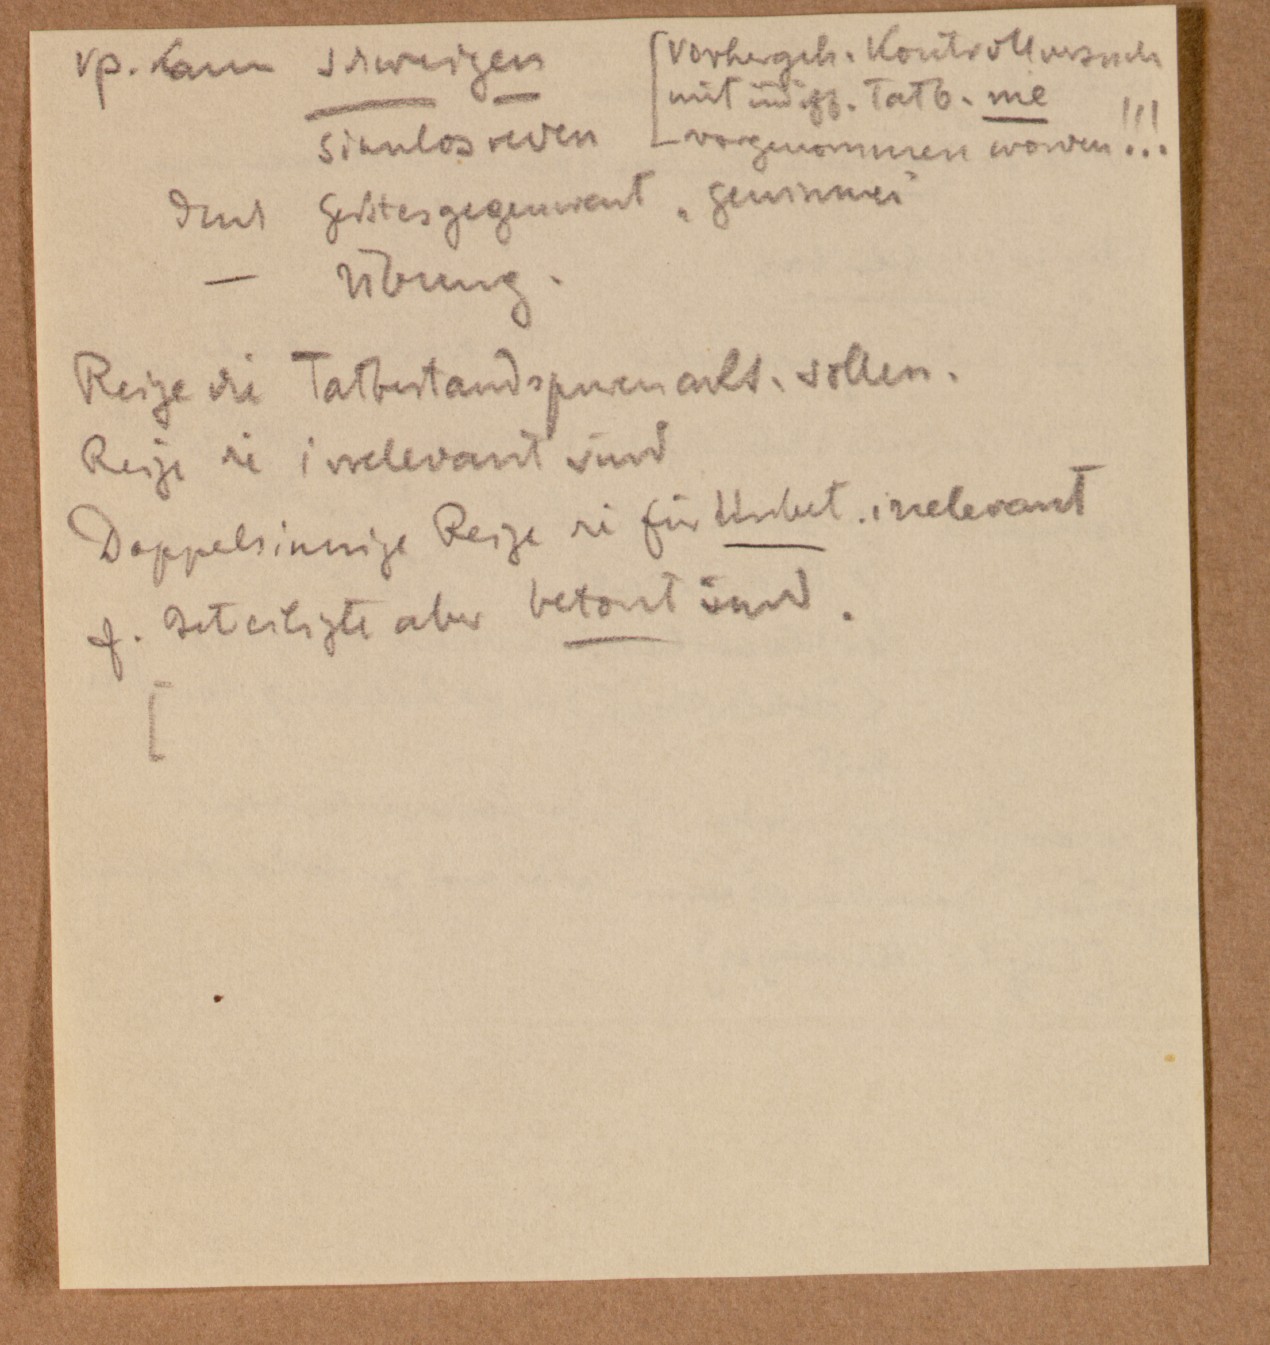 Vp. kann schweigen
sinnlos reden
durch Geistesgegenwart „gewinnen"
— Übung.
[Vorhergeh. Kontrollversuch
mit indiff. Tatb. nie
vorgenommen worden!!!
Reize die Tatbestandspuren akt. sollen.
Reize die irrelevant sind
Doppelsinnige Reize die für Unbet. irrelevant
f. Beteiligte aber betont sind.
[